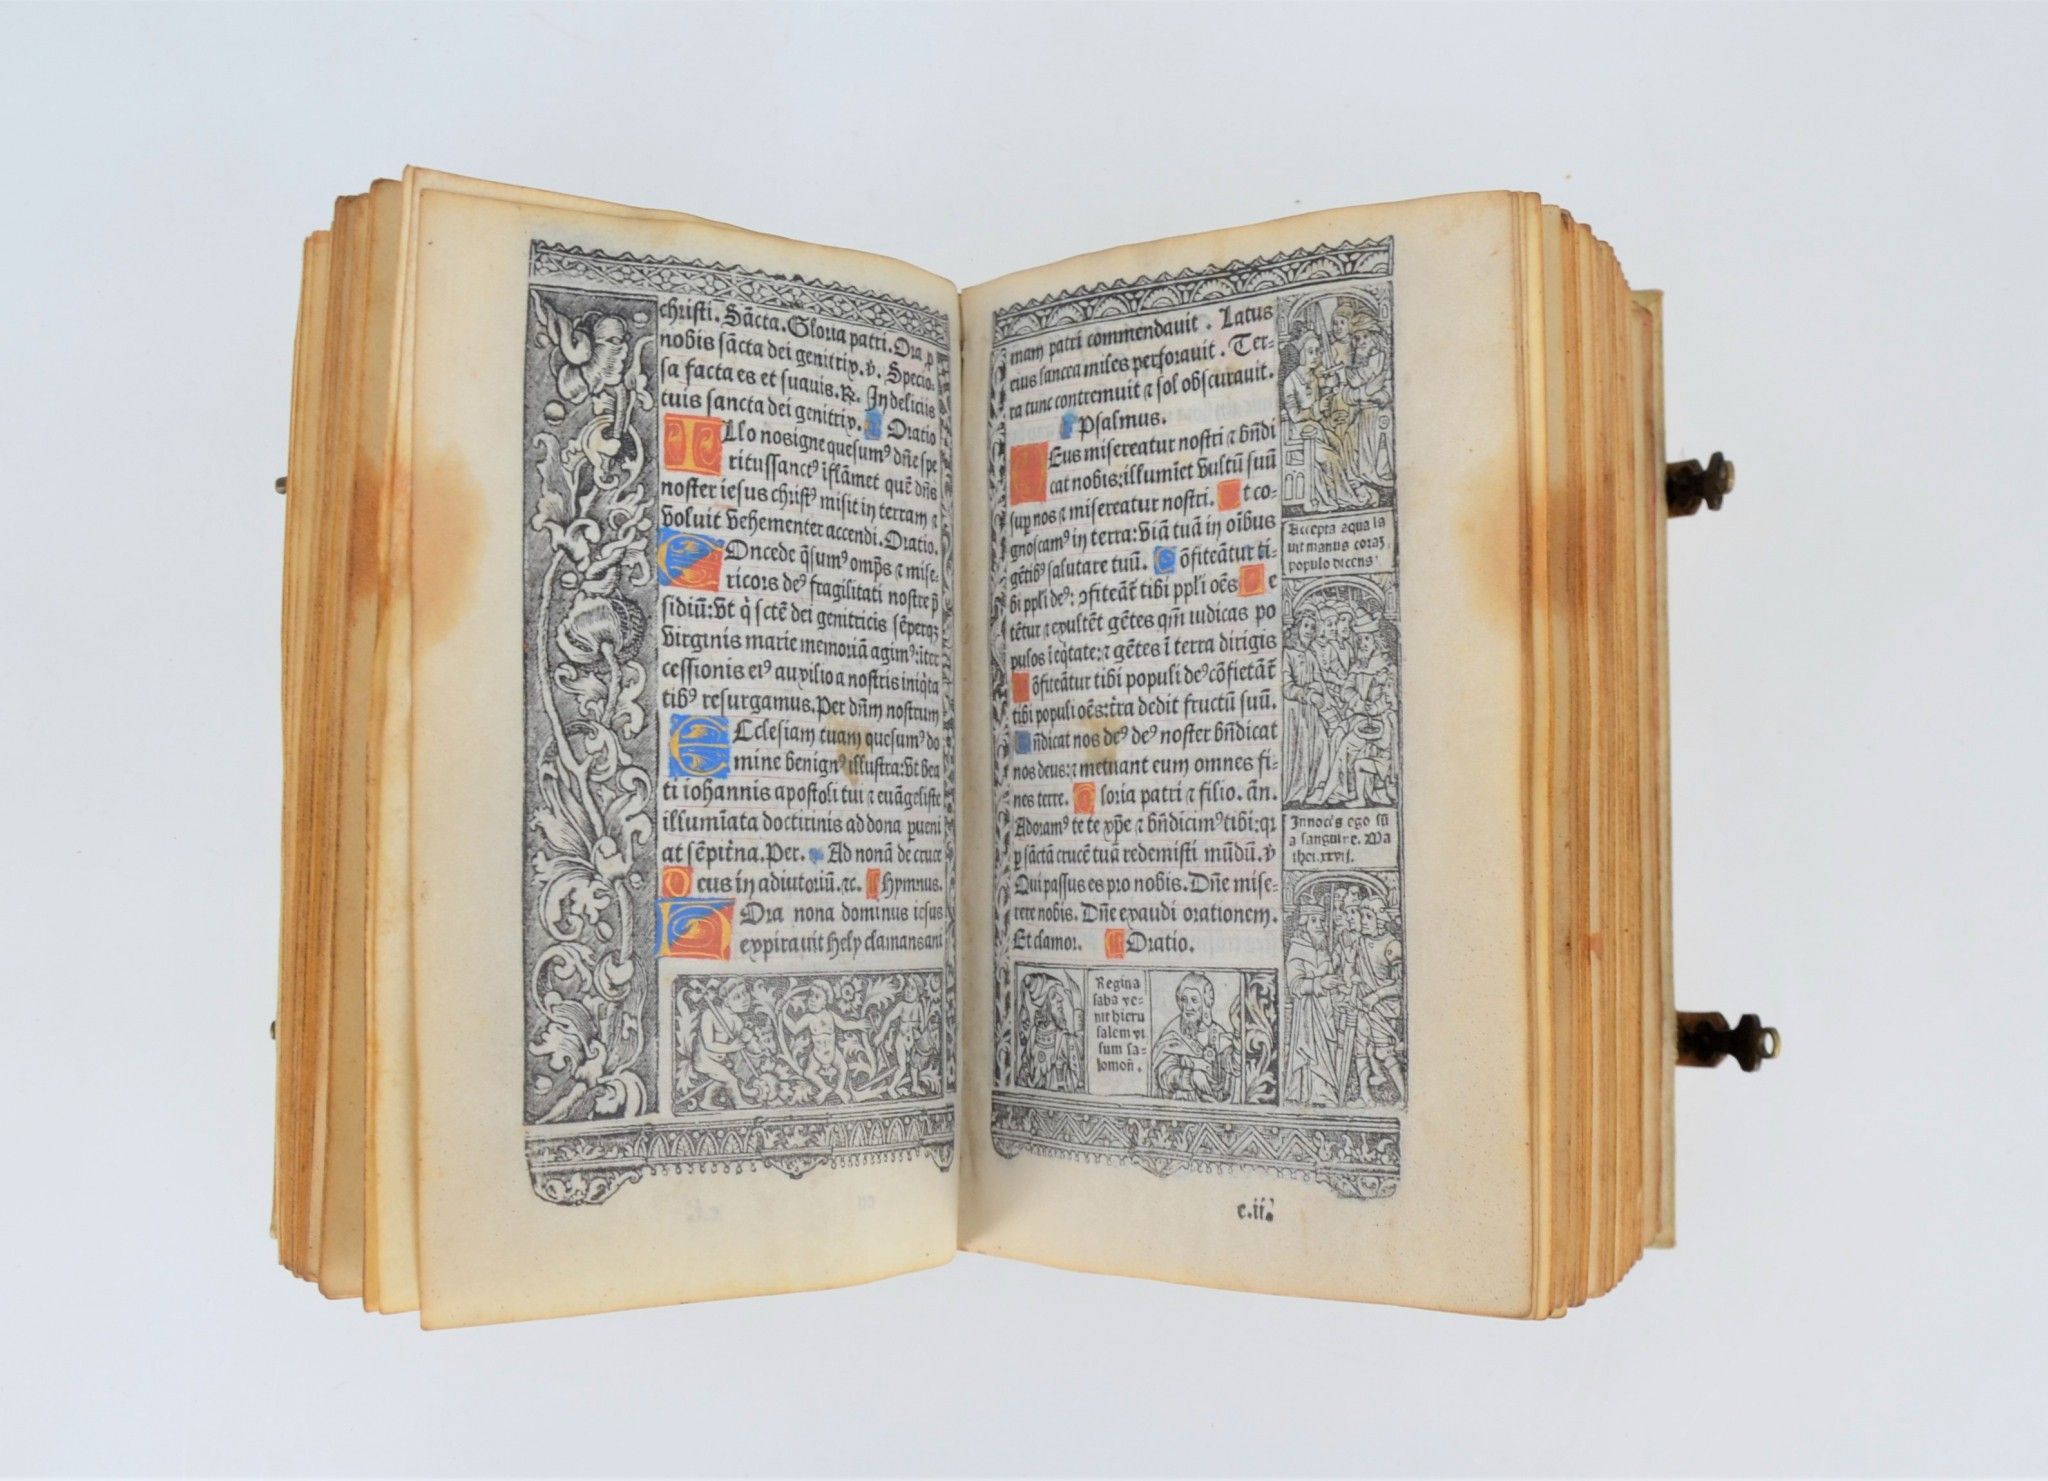 christi. Sācta. Gloria patri. Ora p̱
nobis sācta dei genitrix. v̓. Specio-
sa facta es et suauis. R. In deliciis
tuis sancta dei genitrix. Oratio
Illo nos igne quesumꝰ dn̄e spe
ritussanctꝰ īflāmet quē dn̄s
noster iesus christꝰ misit in terram ⁊
voluit vehementer accendi. Oratio.
Concede q̄sumꝰ omp̄s ⁊ mise-
ricors deꝰ fragilitati nostre p̄
sidiū: vt q̇ sctē dei genitricis sēperqꝫ
virginis marie memoriā agimꝰ: īter
cessionis eiꝰ auxilio a nostris iniq̇ta
tibꝰ resurgamus. Per dn̄m nostrum
Ecclesiam tuam quesumꝰ do
mine benignꝰ illustra: vt bea
ti iohannis apostoli tui ⁊ euāgeliste
illumīata doctirinis ad dona p̱ueni
at sēpit̓na. Per. Ad nonā de cruce
Deus in adiutoriū. ⁊c. Hymnus.
Hora nona dominus iesus
expirauit hely clamans ani
mam patri commendauit. Latus
eius lancea miles perforauit. Ter-
ra tunc contremuit ⁊ sol obscurauit.
Psalmus.
Deus misereatur nostri ⁊ bn̄di
cat nobis: illumīet vultū suū
sup̱ nos ⁊ misereatur nostri. Et co-
gnoscamꝰ in terra: viā tuā in oībus
gētibꝰ salutare tuū. Cōfiteātur ti-
bi pp̄li deꝰ: ꝯfiteāt̄ tibi pp̄li oēs Le
tētur ⁊ exultēt gētes qm̄ iudicas po
pulos ī eq̇tate: ⁊ gētes ī terra dirigis
Cōfiteātur tibi populi deꝰ cōfietāt̄
tibi populi oēs: t̓ra dedit fructū suū.
Bn̄dicat nos deꝰ deꝰ noster bn̄dicat
nos deus: ⁊ metuant eum omnes fi-
nes terre. Gloria patri ⁊ filio. ān.
Adoramꝰ te te xp̄e ⁊ bn̄dicimꝰ tibi: qꝛ
p̱ sāctā crucē tuā redemisti mūdū. v̓
Qui passus es pro nobis. Dn̄e mise-
rere nobis. Dn̄e exaudi orationem.
Et clamor. Oratio.
Accepta aqua la
uit manus coraꝫ
populo dicens
Innocēs ego sū
a sanguine. Ma
thei. xxvij.
Regina
saba ve-
nit hieru
salem vi
sum sa-
lomoñ.
c.ii.